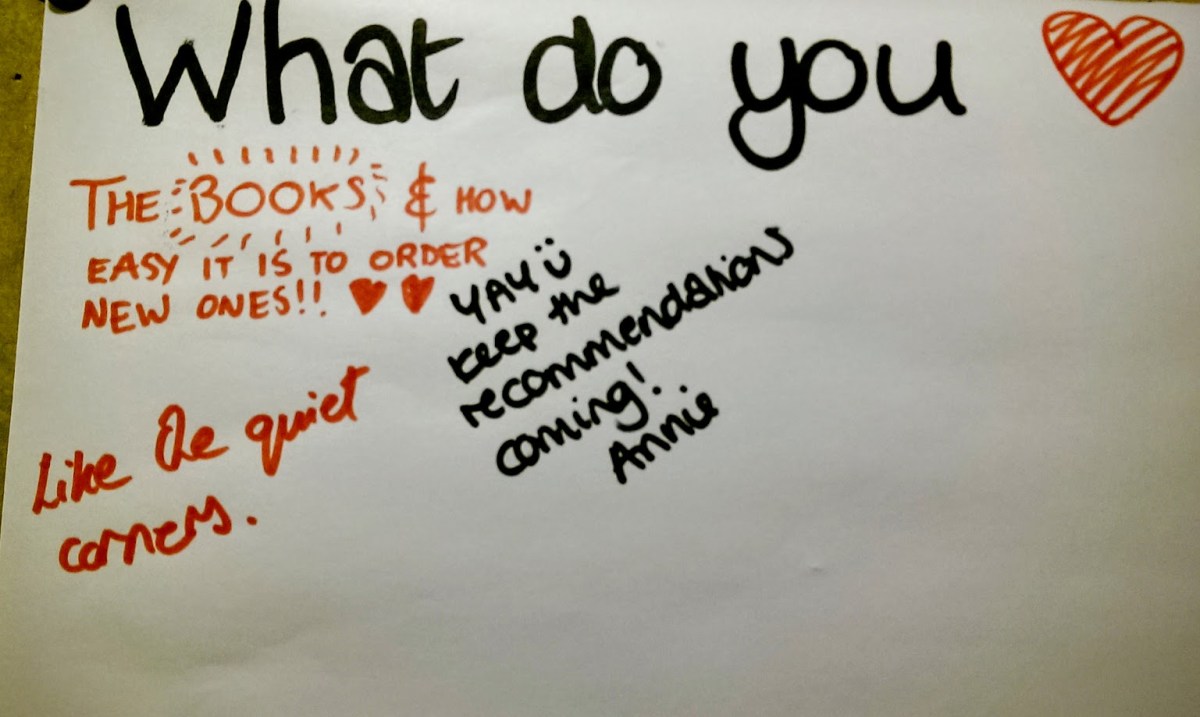 What do you
THE BOOKS & HOW
EASY IT IS TO ORDER
NEW ONES!!
YAY
keep the
recommendations
coming!
Annie
Like the quiet
corners.